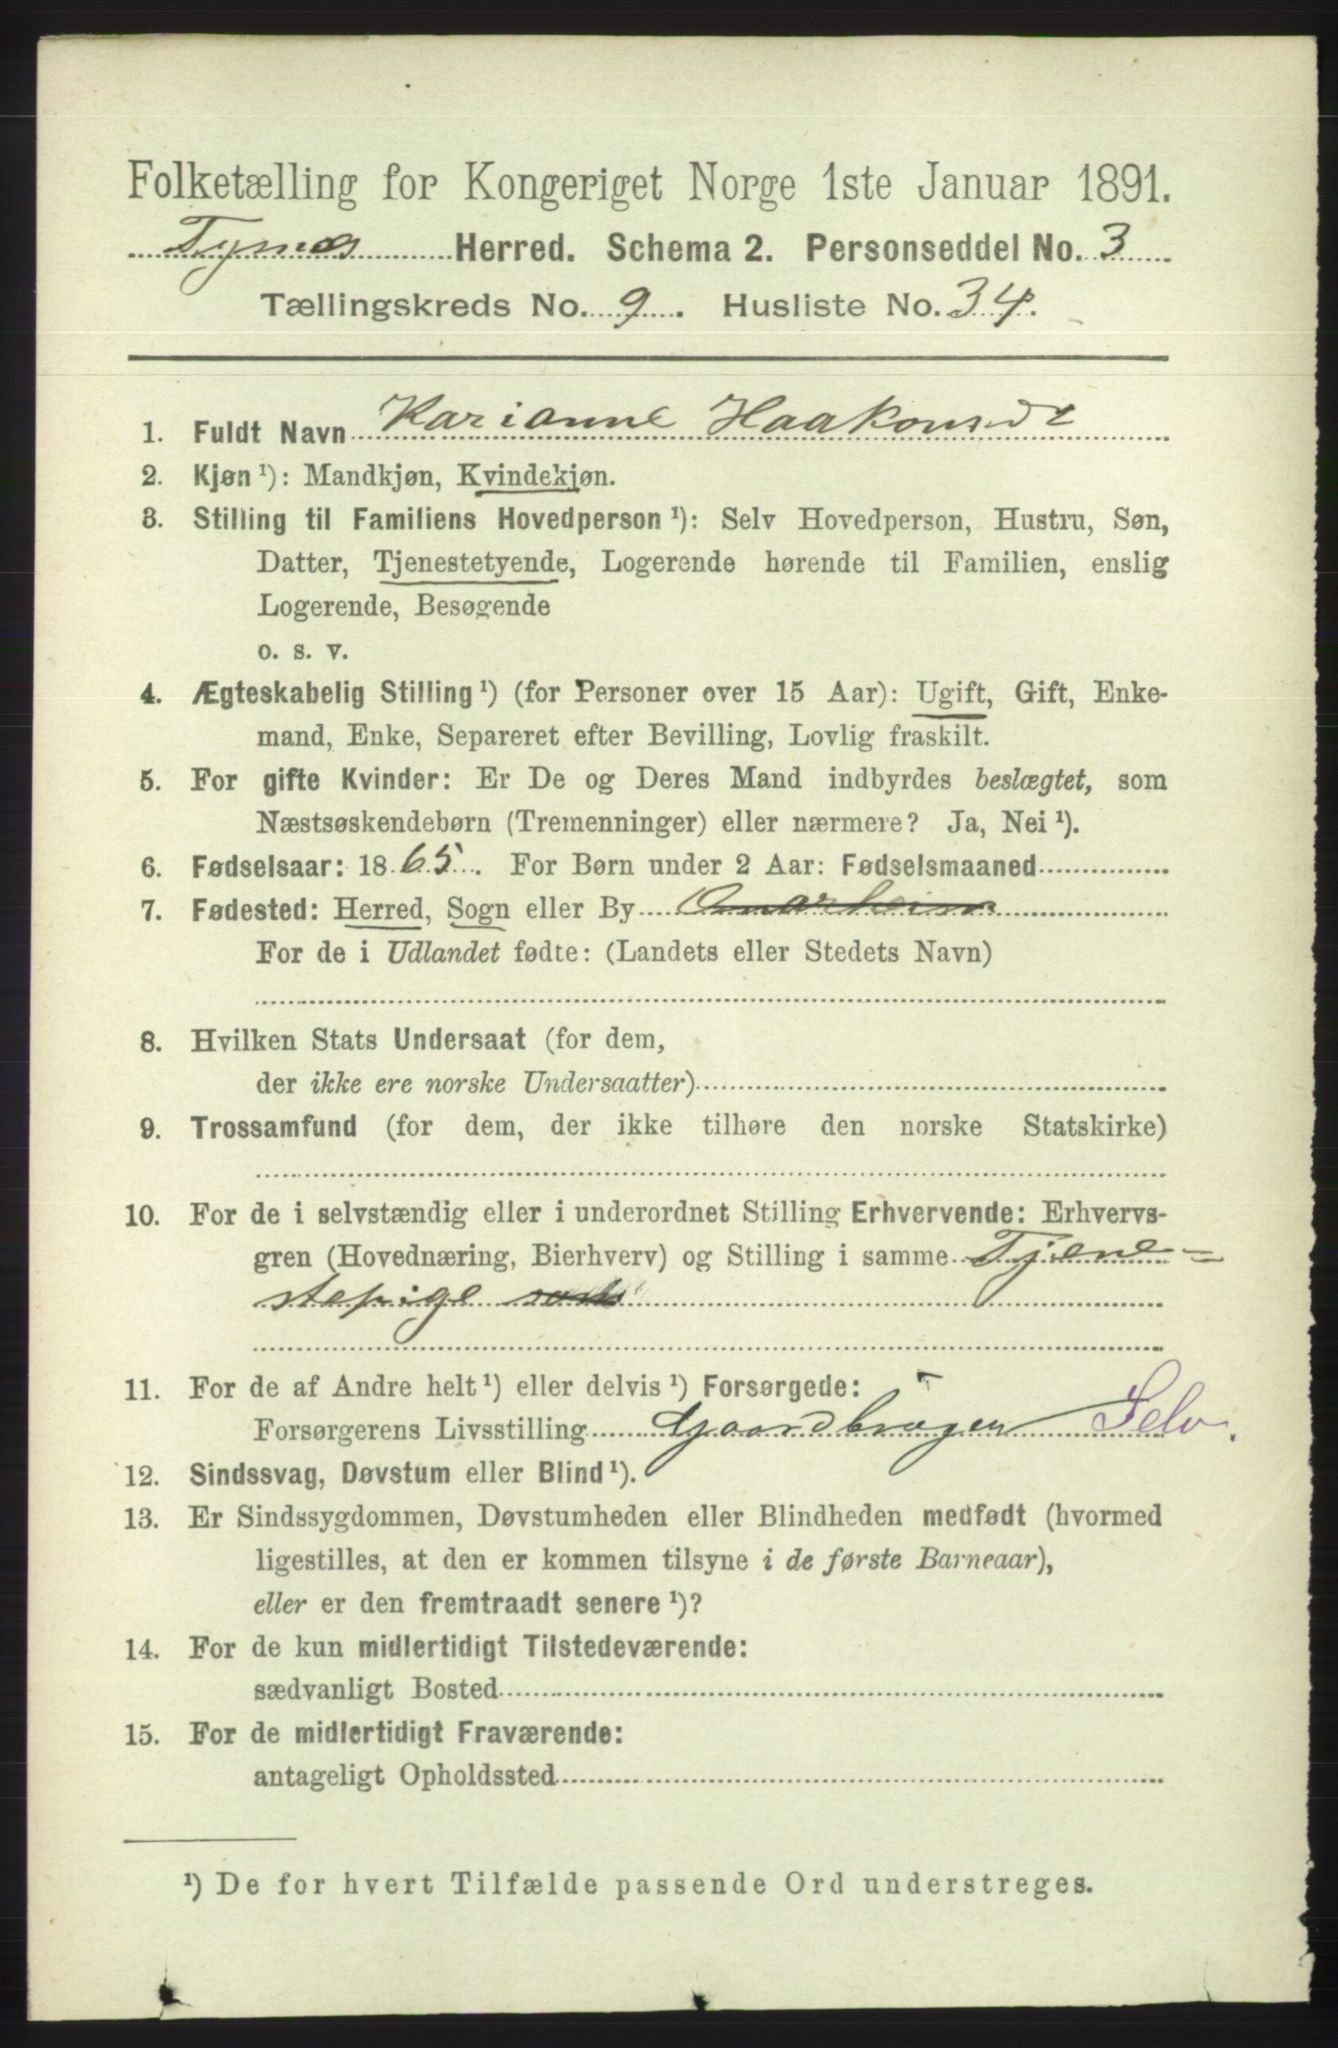 Folketælling for Kongeriget Norge 1ste Januar 1891.
Tysnes Herred. Schema 2. Personseddel No. 3
Tællingskreds No. 9. Husliste No. 34.
1. Fuldt Navn Karianne Haakonsdt
2. Kjøn ¹): Mandkjøn, Kvindekjøn.
3. Stilling til Familiens Hovedperson ¹): Selv Hovedperson, Hustru, Søn,
Datter, Tjenestetyende, Logerende hørende til Familien, enslig
Logerende, Besøgende
o. s. v.
4. Ægteskabelig Stilling ¹) (for Personer over 15 Aar): Ugift, Gift, Enke-
mand, Enke, Separeret efter Bevilling, Lovlig fraskilt.
5. For gifte Kvinder: Er De og Deres Mand indbyrdes beslægtet, som
Næstsøskendebørn (Tremenninger) eller nærmere? Ja, Nei ¹).
6. Fødselsaar: 1865. For Børn under 2 Aar: Fødselsmaaned
7. Fødested: Herred, Sogn eller By Onarheim
For de i Udlandet fødte: (Landets eller Stedets Navn)
8. Hvilken Stats Undersaat (for dem,
der ikke ere norske Undersaatter)
9. Trossamfund (for dem, der ikke tilhøre den norske Statskirke)
10. For de i selvstændig eller i underordnet Stilling Erhvervende: Erhvervs-
gren (Hovednæring, Bierhverv) og Stilling i samme Tjene=
stepige
11. For de af Andre helt ¹) eller delvis ¹) Forsørgede:
Forsørgerens Livsstilling Gaardbruger Selv.
12. Sindssvag, Døvstum eller Blind ¹).
13. Er Sindssygdommen, Døvstumheden eller Blindheden medfødt (hvormed
ligestilles, at den er kommen tilsyne i de første Barneaar),
eller er den fremtraadt senere ¹)?
14. For de kun midlertidigt Tilstedeværende:
sædvanligt Bosted
15. For de midlertidigt Fraværende:
antageligt Opholdssted
¹) De for hvert Tilfælde passende Ord understreges.